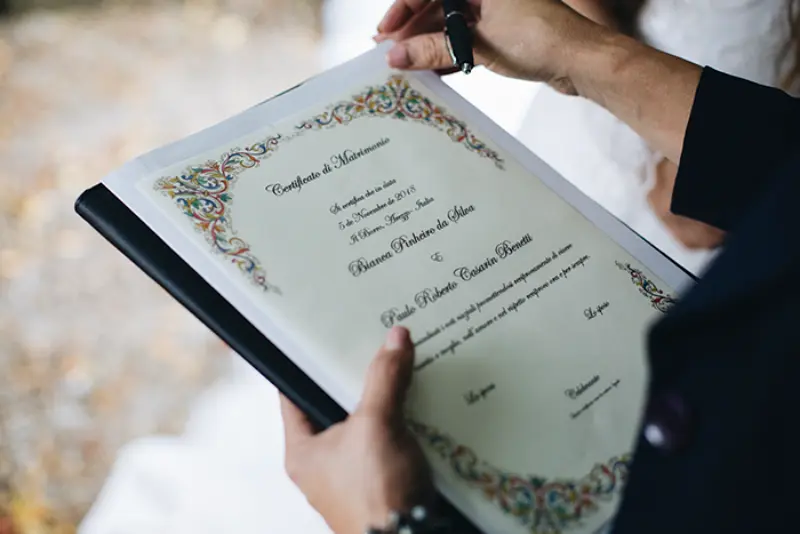 Certificato di Matrimonio
Si certifica che in data
5 de Novembre de 2018
Il Borro, Arezzo- Italia
Bianca Pinheiro da Silva
&
Paulo Roberto Casarin Benetti
i voti nuziali promettendosi reciprocamente di vivere
e meglio, nell'amore e nel rispetto reciproco ora e per sempre.
Lo sposo
La sposa
Celebrante